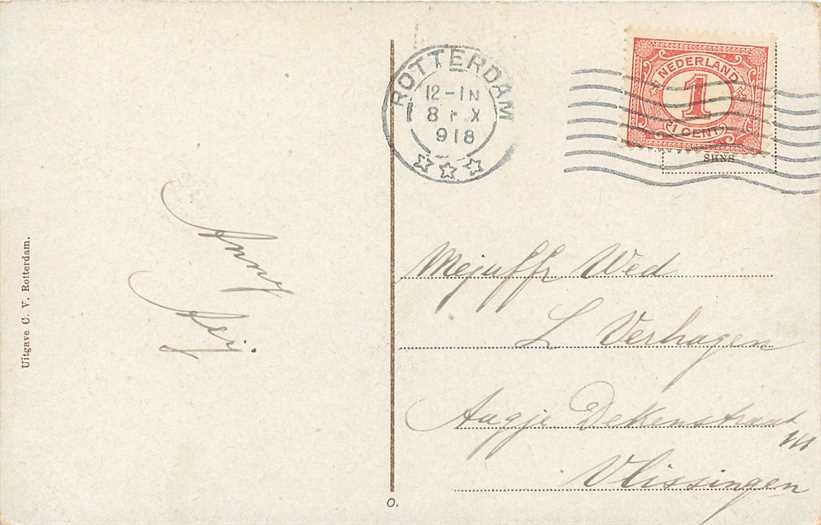 Uitgave C. V. Rotterdam.
Anny
ROTTERDAM
12-1N
8 X
918
NEDERLAND
1
1 CENT
SHNS
Mejuffr Wed
L Verhagen
Aagje Dekenstraat
Vlissingen
O.